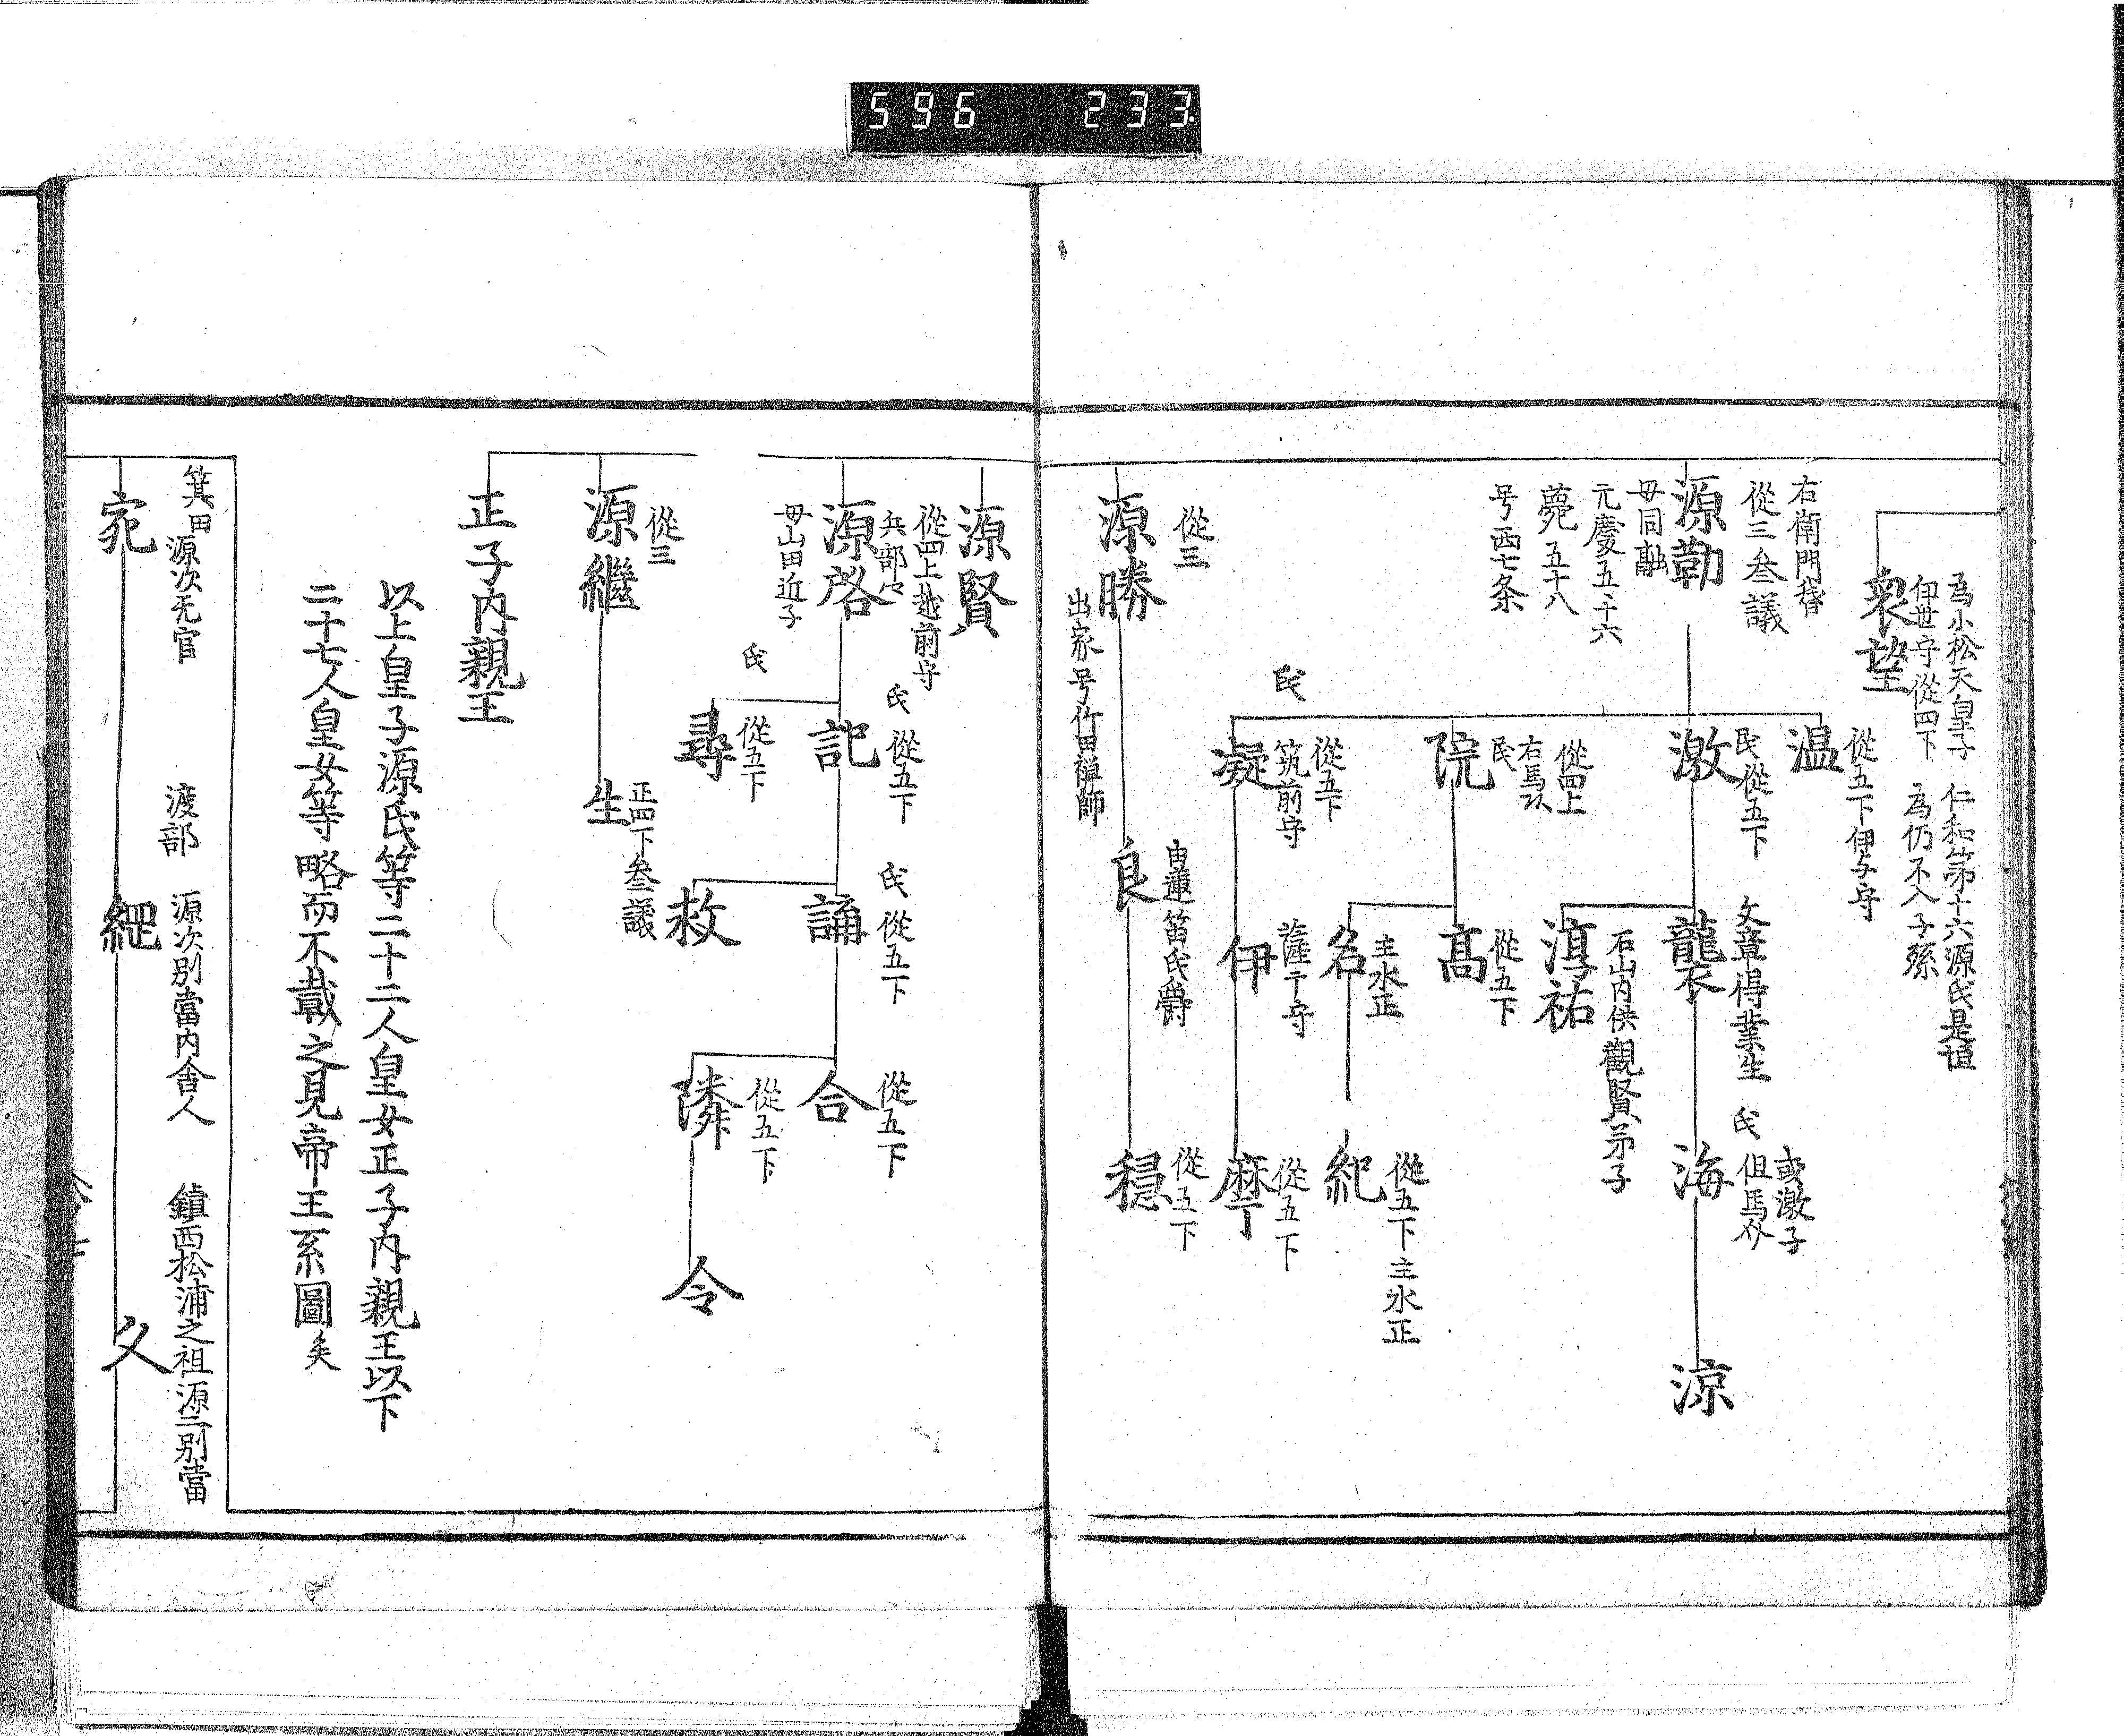 596 233.
為小松天皇子 仁和第十六源氏是恒
伊世守從四下 為仍不入子孫
衆望
右衛門督
從三参議
源勤
母同融
元慶五十六
薨五十八
号西七条
從五下伊与守
温
氏從五下
激
文章得業生
襲
或激子
氏
海
涼
石山内供觀賢弟子
淳祐
從四上
右馬
氏
院
從五下
髙
主水正
名
從五下主水正
紀
氏
從五下
筑前守
凝
薩广守
伊
從五下
摩
從三
源勝
出家号竹田禅師
由蓮笛氏爵
良
從五下
穏
源賢
從四上越前守
兵部
源啓
母山田近子
氏從五下
記
氏
從五下
尋
氏從五下
誦
救
從五下
合
從五下
隣
令
從三
源継
正四下参議
生
正子内親王
以上皇子源氏等二十二人皇女正子内親王以下
二十七人皇女等略而不載之見帝王系圖矣
箕田源次无官
宛
渡部 源次別當内舎人
綱
鎮西松浦之祖源二別當
久